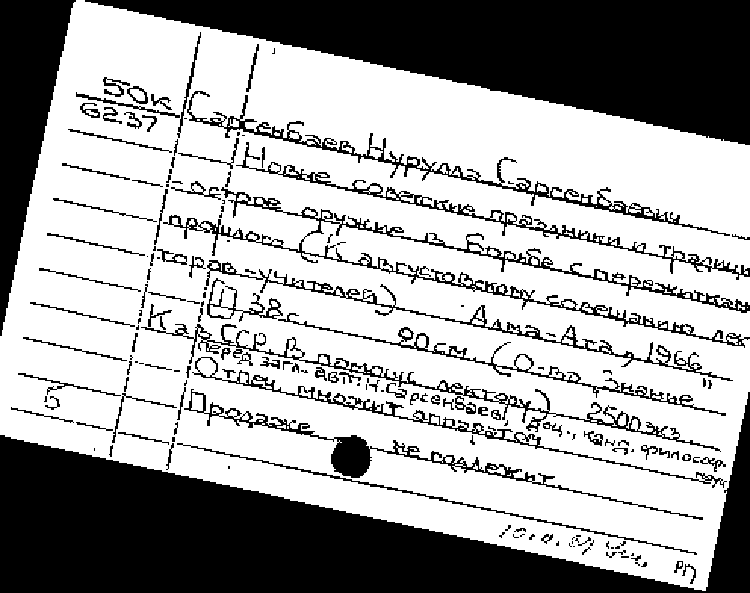 50к
62.37
Сарсенбаев, Нурулла Сарсенбаевич
Новые советские праздники и традици
- острое оружие в борьбе с пережиткам
прошлого (К августовскому совещанию лек
торов-учителей) Алма-Ата, 1966,
[1], 38с. 20см. (О-во „Знание"
Каз ССР. В помощь лектору) 2500 экз.
Перед загл. авт.: Н. Сарсенбаев, доц., канд. философ. наук
Отпеч. множит аппаратом
Продаже не подлежит.
Б
РП